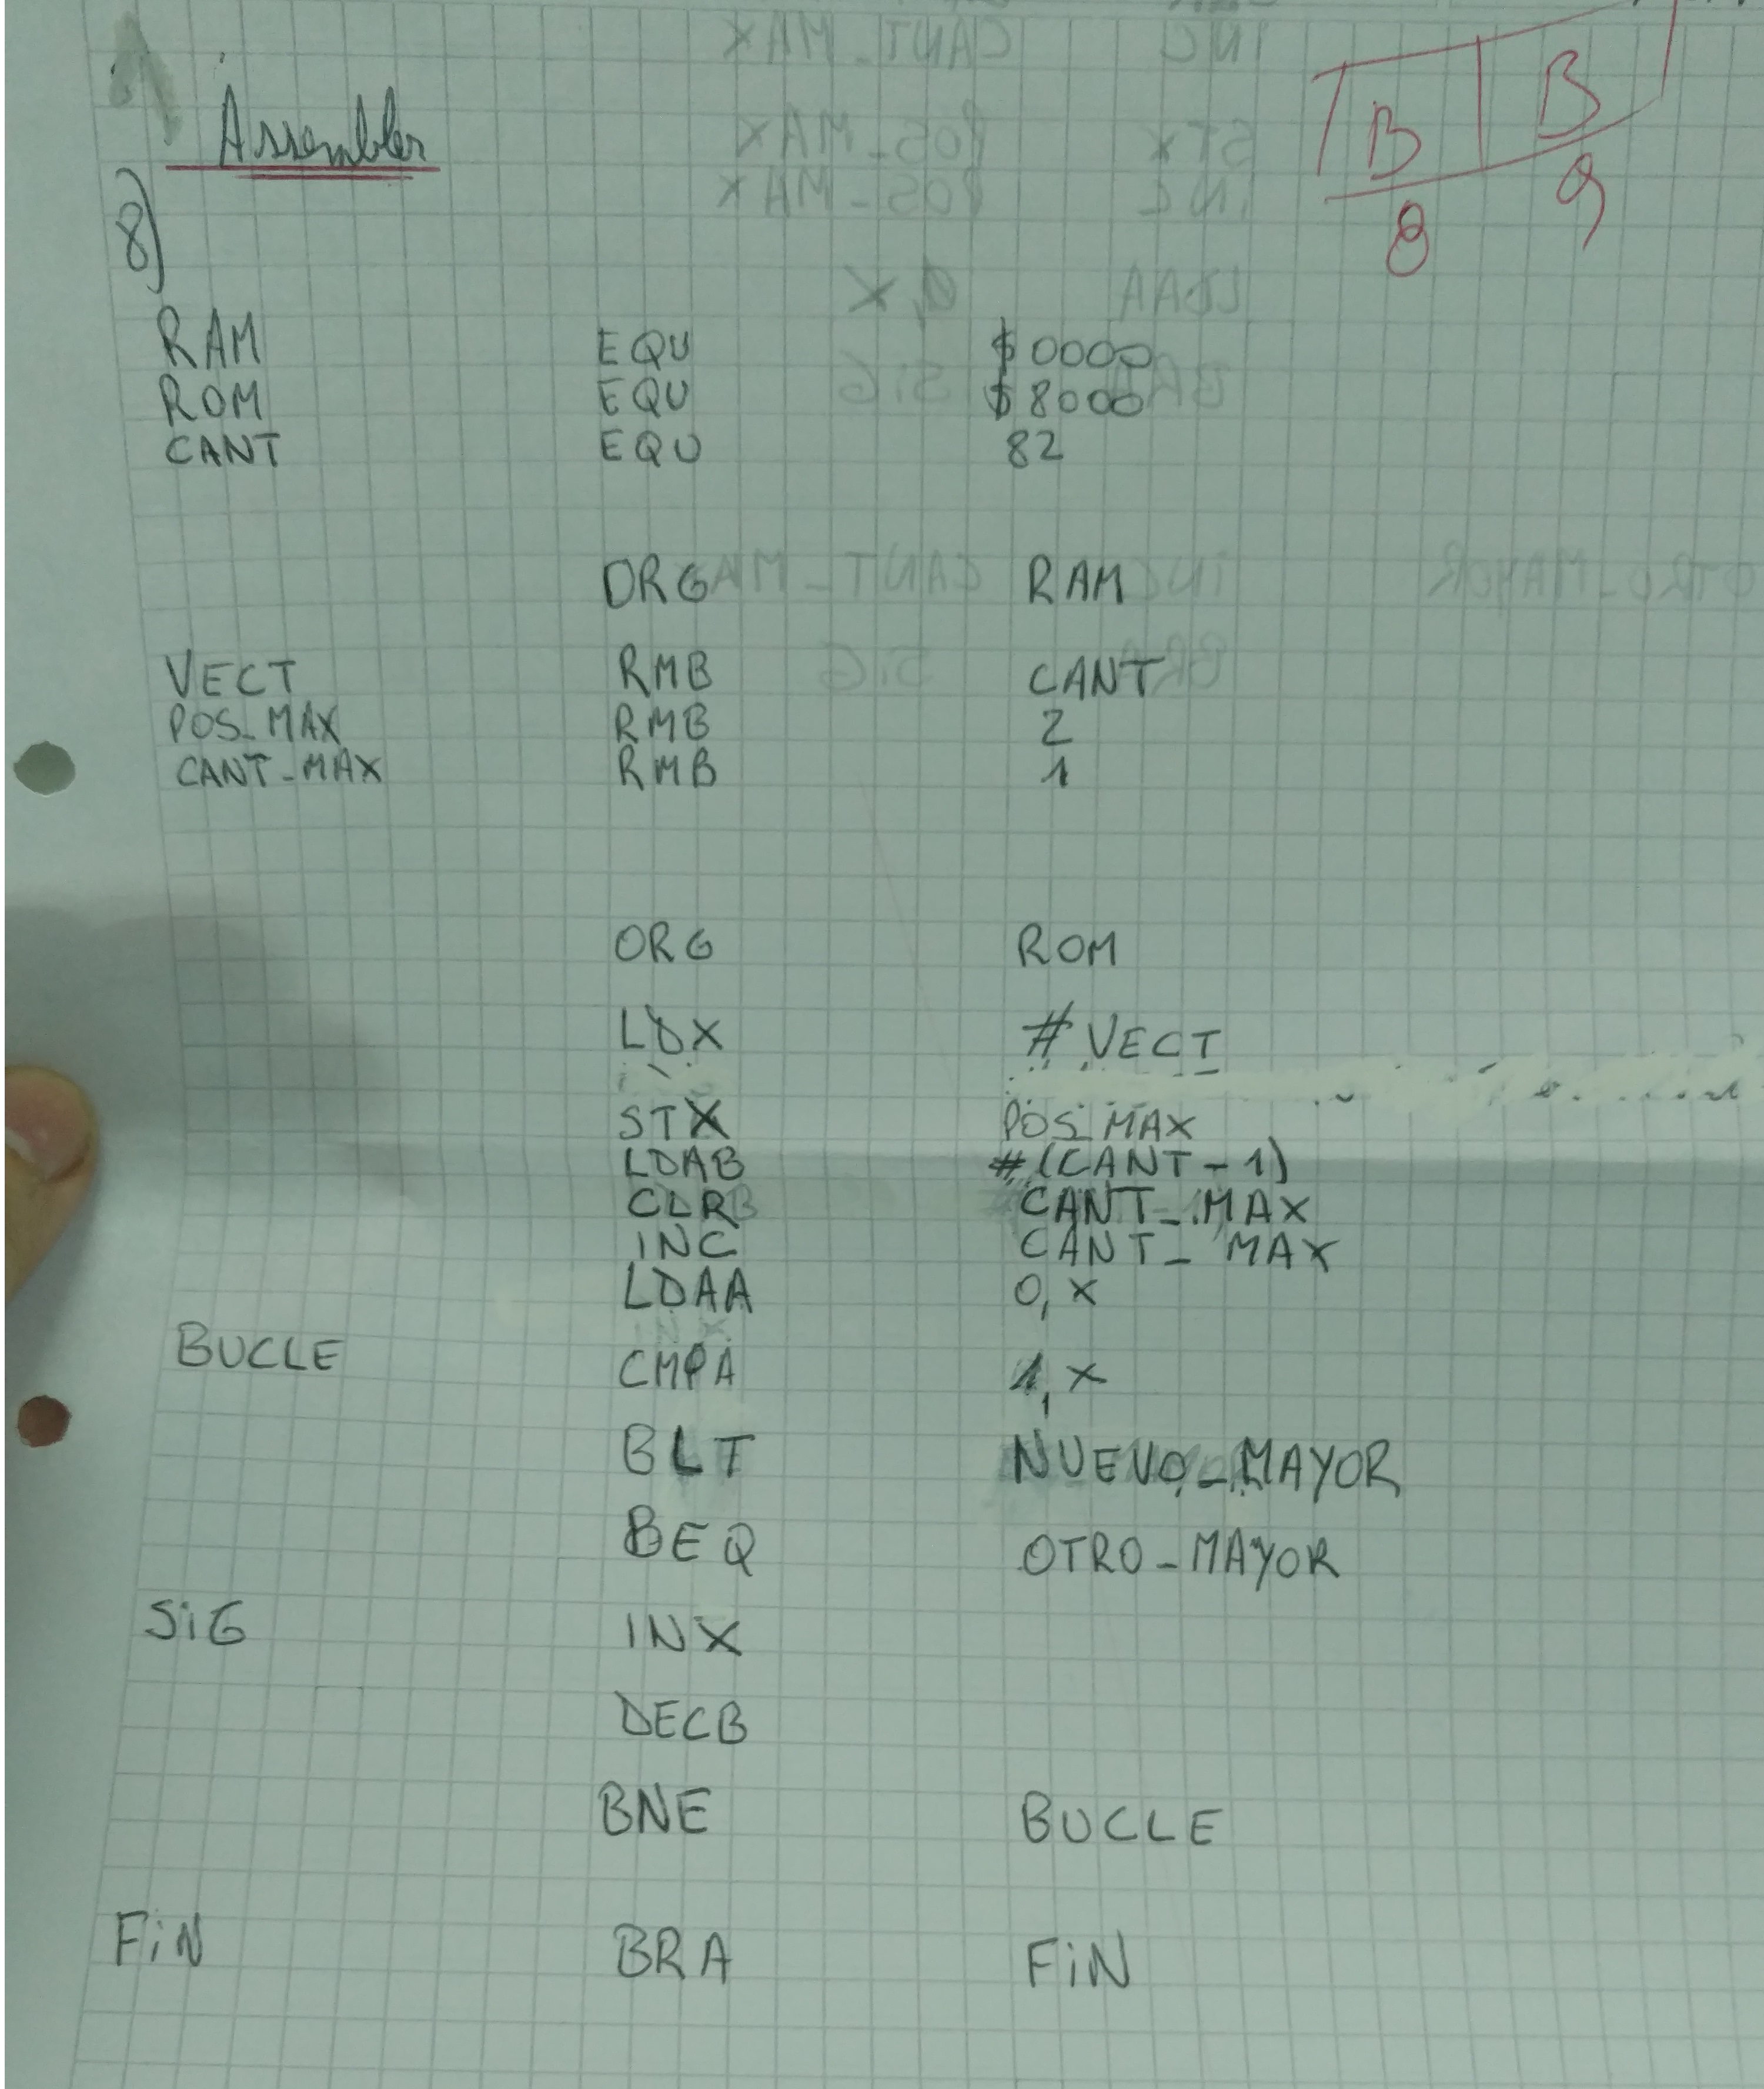 Assembler
B B
8 9
8)
RAM EQU $0000
ROM EQU $8000
CANT EQU 82
ORG RAM
VECT RMB CANT
POS_MAX RMB 2
CANT_MAX RMB 1
ORG ROM
LDX #VECT
STX POS_MAX
LDAB #(CANT-1)
CLR CANT_MAX
INC CANT_MAX
LDAA 0,X
BUCLE CMPA 1,X
BLT NUEVO_MAYOR
BEQ OTRO_MAYOR
SiG INX
DECB
BNE BUCLE
FiN BRA FiN